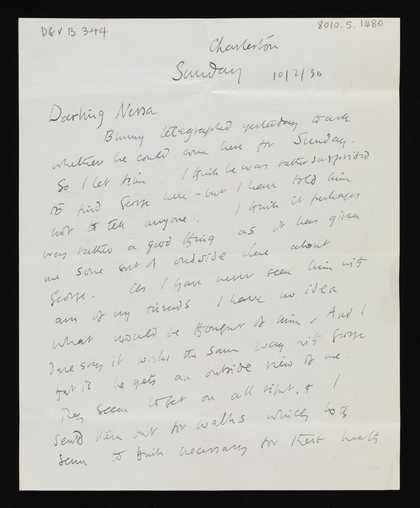 DG v B 344
8010.5.1480
Charleston
Sunday 10/2/30
Darling Nessa
Bunny telegraphed yesterday to ask
whether he could come here for Sunday.
So I let him I think he was rather surprised
to find George here - but I have told him
not to tell anyone. I think it perhaps
was rather a good thing as it has given
me some sort of outside idea about
George. As I have never seen him with
any of my friends I have no idea
what would be thought of him, And I
dare say it works the same way with George
that is he gets an outside view of me
They seem to get on all right, & I
send them out for walks which both
seem to think necessary for their health